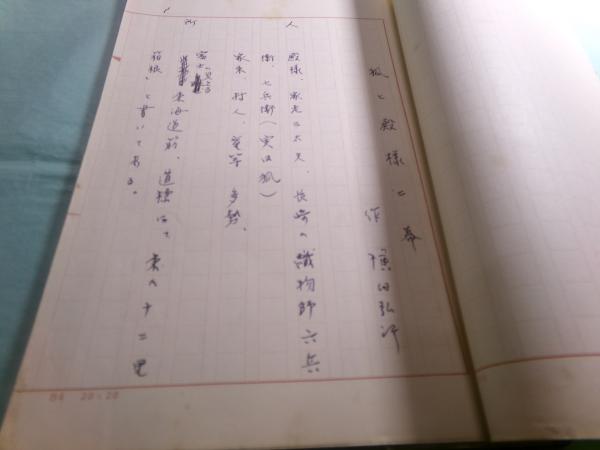 狐と殿様 二幕
作 横田弘行
人
殿様、家老三太夫、長崎の織物師六兵
衛、七兵衛（実は狐）
家来、村人、並等 多勢、
所
富士の見える
東海道筋、道標に 東へ十二里
箱根、と書いてある。
B4 20×20